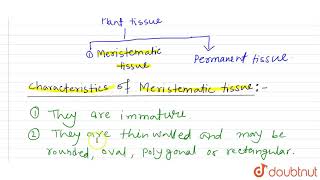 Plant tissue
① Meristematic tissue
Permanent tissue
Characteristics of Meristematic tissue:-
① They are immature
② They are thin walled and may be
rounded, oval, polygonal or rectangular.
doubtnut